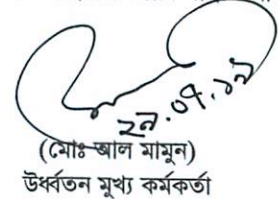 ২৯.০৭.১৯
(মোঃ আল মামুন)
উর্ধ্বতন মুখ্য কর্মকর্তা